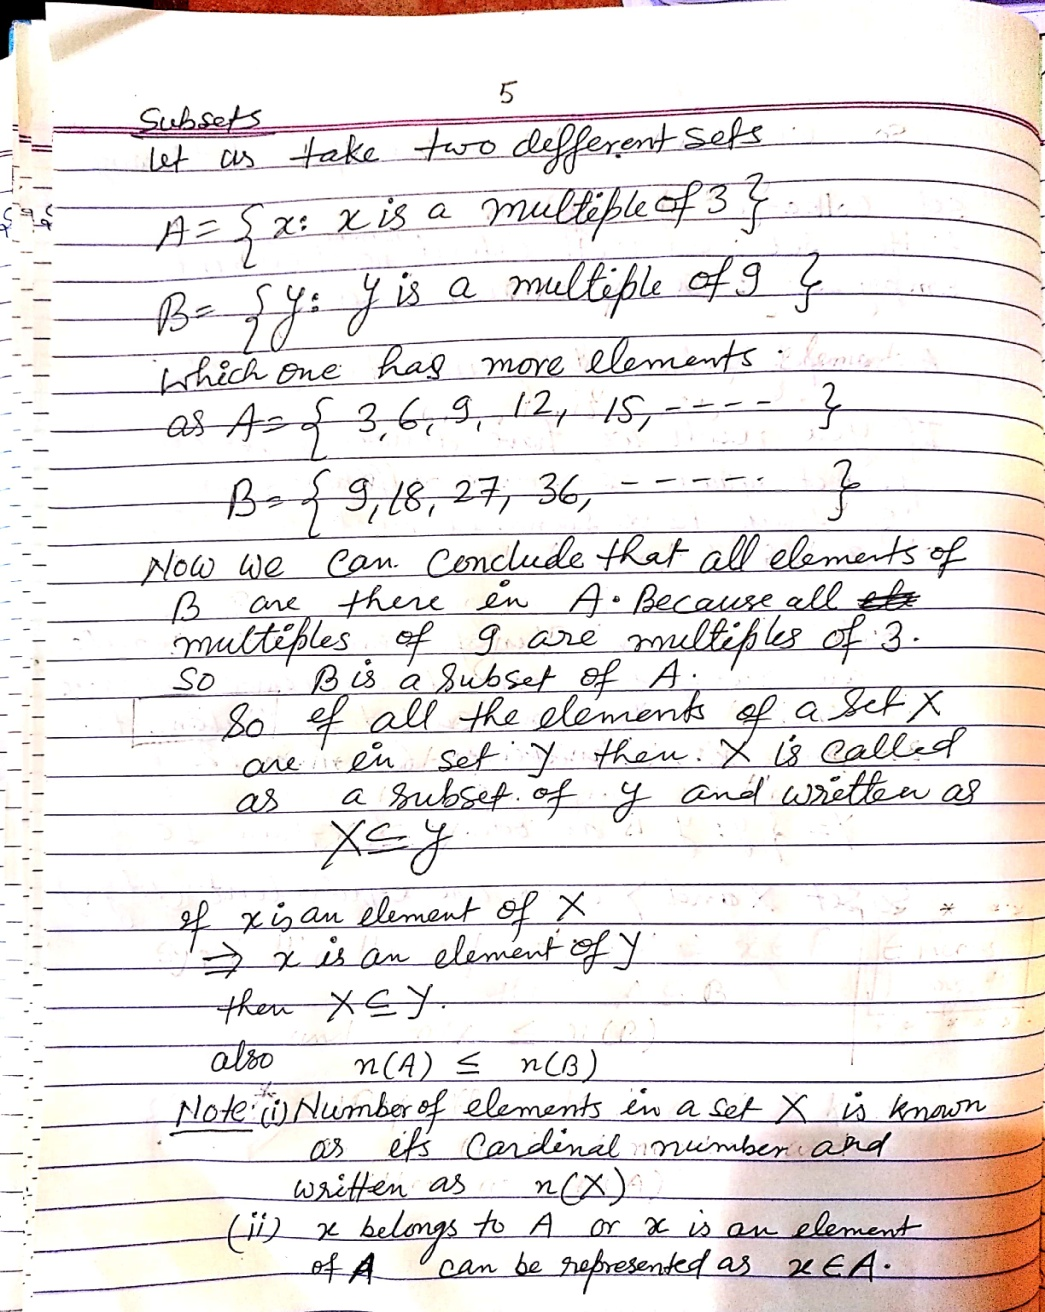 5
Subsets
Let us take two defferent sets
A = { x: x is a multiple of 3 }
B = { y: y is a multiple of 9 }
which one has more elements
as A = { 3, 6, 9, 12, 15, ---- }
B = { 9, 18, 27, 36, ----- }
Now we can conclude that all elements of
B are there in A. Because all
multiples of 9 are multiples of 3.
So B is a subset of A.
So if all the elements of a set X
are in set Y then X is called
as a subset of Y and written as
X ⊆ Y
If x is an element of X
⇒ x is an element of Y
then X ⊆ Y.
also n(A) ≤ n(B)
Note: (i) Number of elements in a set X is known
as its Cardinal number and
written as n(X)
(ii) x belongs to A or x is an element
of A can be represented as x ∈ A.